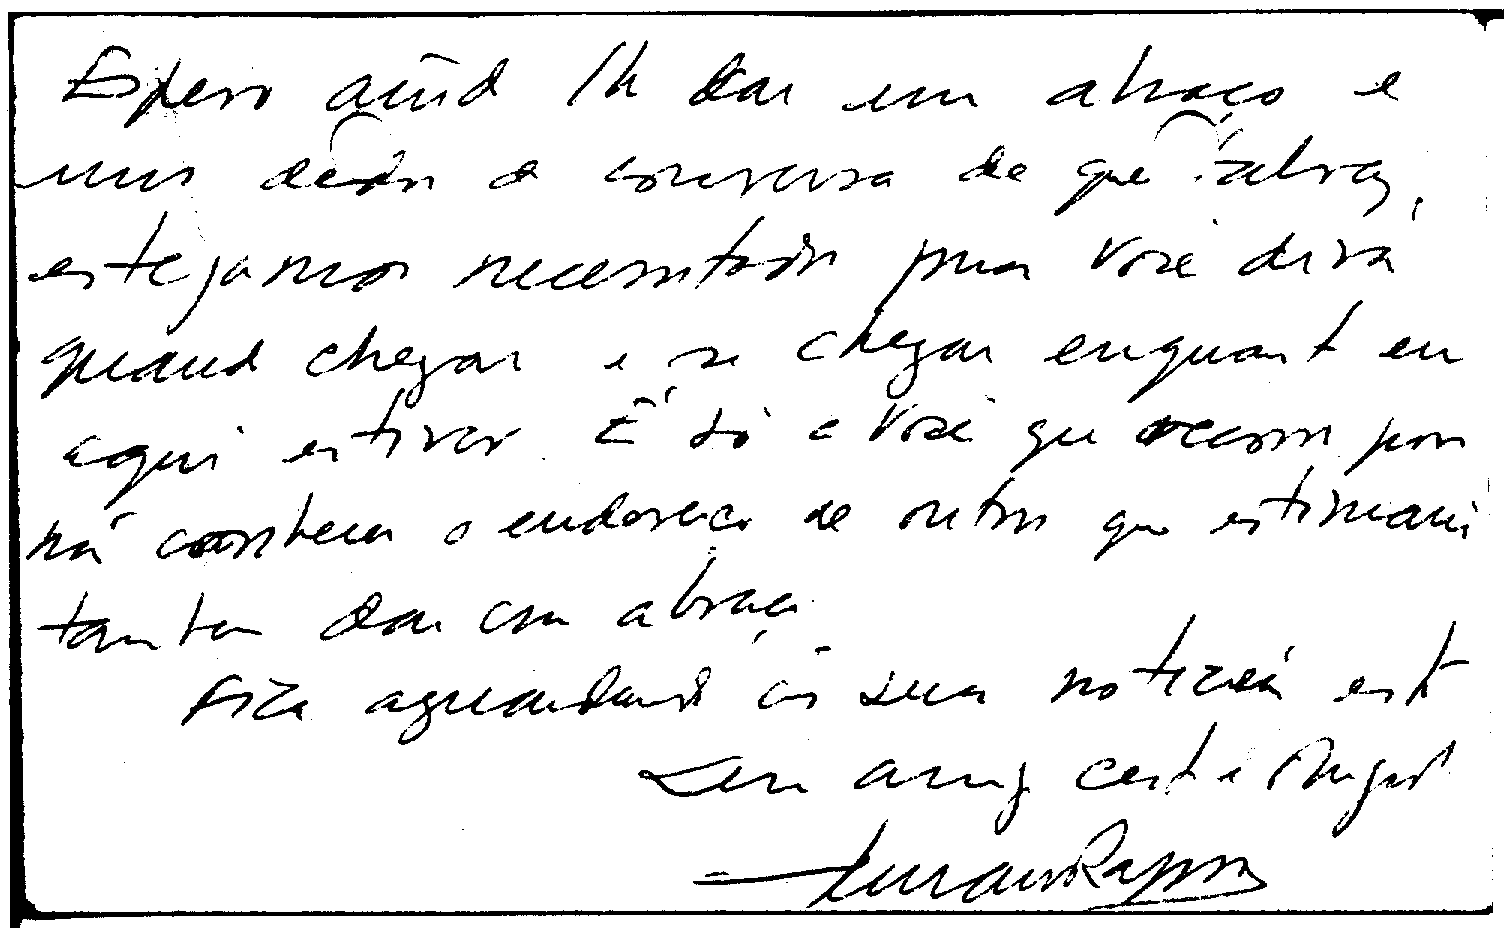 Espero ainda lhe dar um abraço e
uns dedos de conversa de que talvez,
estejamos necessitados pois você dirá
quando chegar e se chegar enquanto eu
aqui estiver. É só a você que recorro por
não conhecer o endereço de outros que estimaria
também dar um abraço.
Fica aguardando as suas notícias este
seu amigo certo e